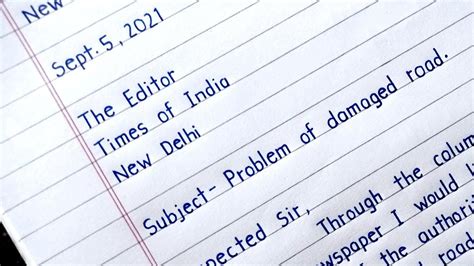 New
Sept. 5, 2021
The Editor
Times of India
New Delhi
Subject- Problem of damaged road.
pected Sir,
Through the colum
wspaper I would l
of the authoriti
road